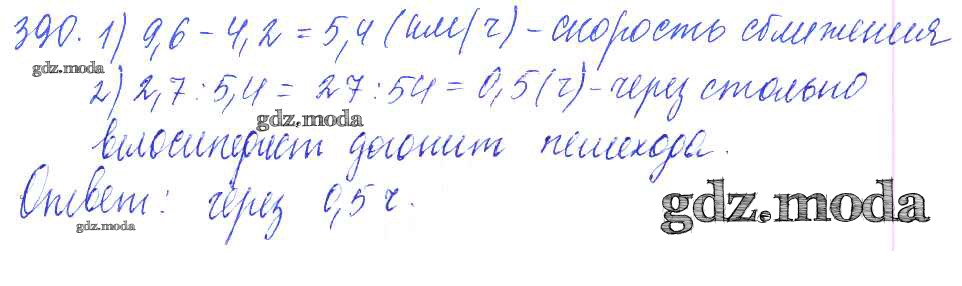 390. 1) 9,6 - 4,2 = 5,4 (км/ч) - скорость сближения
gdz.moda
2) 2,7 : 5,4 = 27 : 54 = 0,5 (ч) - через столько
gdz.moda
велосипедист догонит пешехода.
Ответ: через 0,5 ч.
gdz.moda
gdz.moda